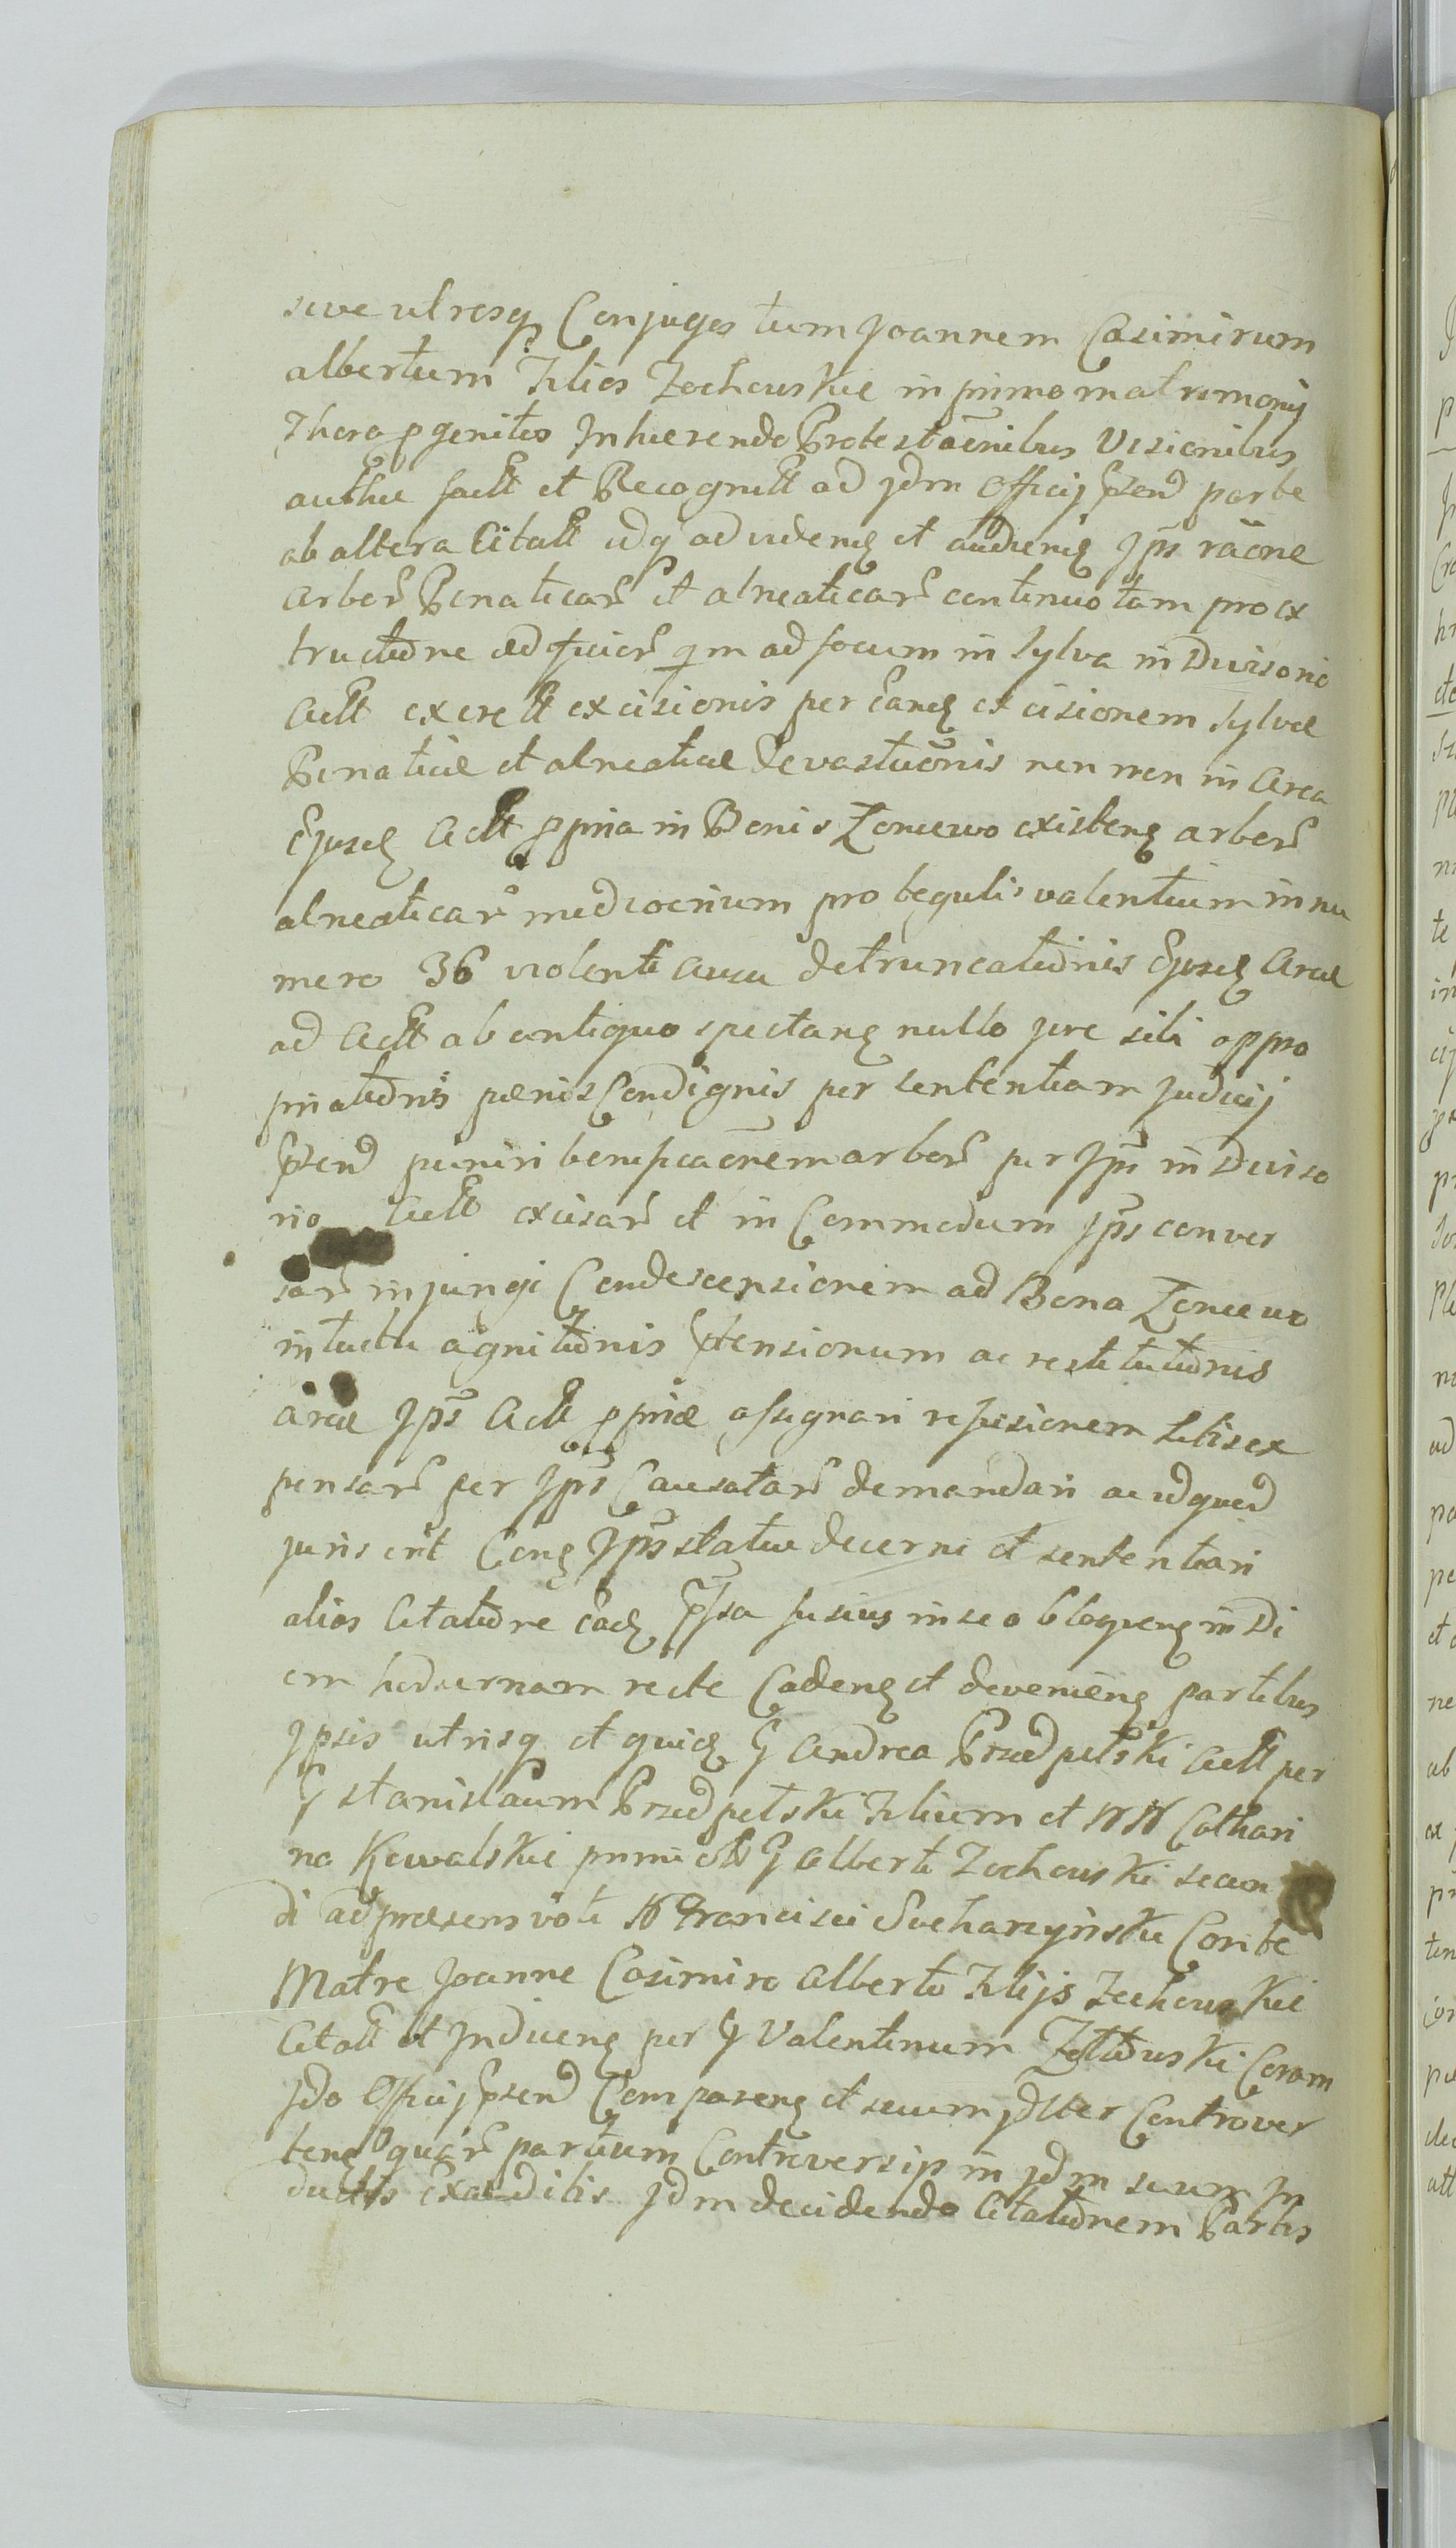 sive utrosq Conjuges tum Joannem Casimirum
albertum Filios Zochouskie in primo matrimonij
Thoro pgenitos Inhaerendo Protestaōnibus Visionibus
authce factt et Recognitt ad jdm Officij pszend parte
ab altera Citatt idq ad videnđ et audienđ Jps raōne
arbor̃ Penaticar̃ et alneaticar̃ continuo tam pro ex
tructiōne aedificior̃ qm ad focum in Sylva in Divisorio
Actt exerctt excisionis per eanđ excisionem Sylvae
Penaticae et alneaticae devastaōnis nen non in area
Ejusđ Actt ppria in Bonis Zencewo existenđ arbor̃
alneaticar̃ mediocrium pro tegulis valentium in nu
mero 36 violenti ausu detruncatiōnis Ejusđ Areae
ad Actt ab antiquo spectanđ nullo jure sibi appro
priatiōnis paenis Condignis per Sententiam Judicij
pszend puniri bonificaōnem arbor̃ per Jps in Diviso
rio Actt excisar̃ et in Commodum Jps conver
sar̃ injungi Condescensionem ad Bona Zencewo
intuitu agnitiōnis ptensionum ac restitutiōnis
areae Jps Actt ppriae assignari refusionem Litis ex
pensar̃ per Jps Causatar̃ demandari ac idquod
juris erit Conđ Jps statui decerni et sententiari
alias Citatiōne eađ pssa fusius in se obloquenđ in Di
em hodiernam recte Cadenđ et devenienđ partibus
Jpsis utrisq et quiđ G Andrea Przedpełski Actt per
G Stanislaum Przedpełski Filium et NN Cathari
na Kowalskie primi olim G Alberti Zochouski secun
di ad praesens voti N Francisci Sucharzynski Consorte
Matre Joanne Casimiro Alberto Filijs Zochouskie
Citatt et Inducenđ per G Valentinum Coram
Jdo Officij pszend Comparenđ et secum jdlter Controver
tenđ quar̃ partium Controversijs in jdm suum In
ductis Exauditis Jdm decidendo Citatiōnem Partis